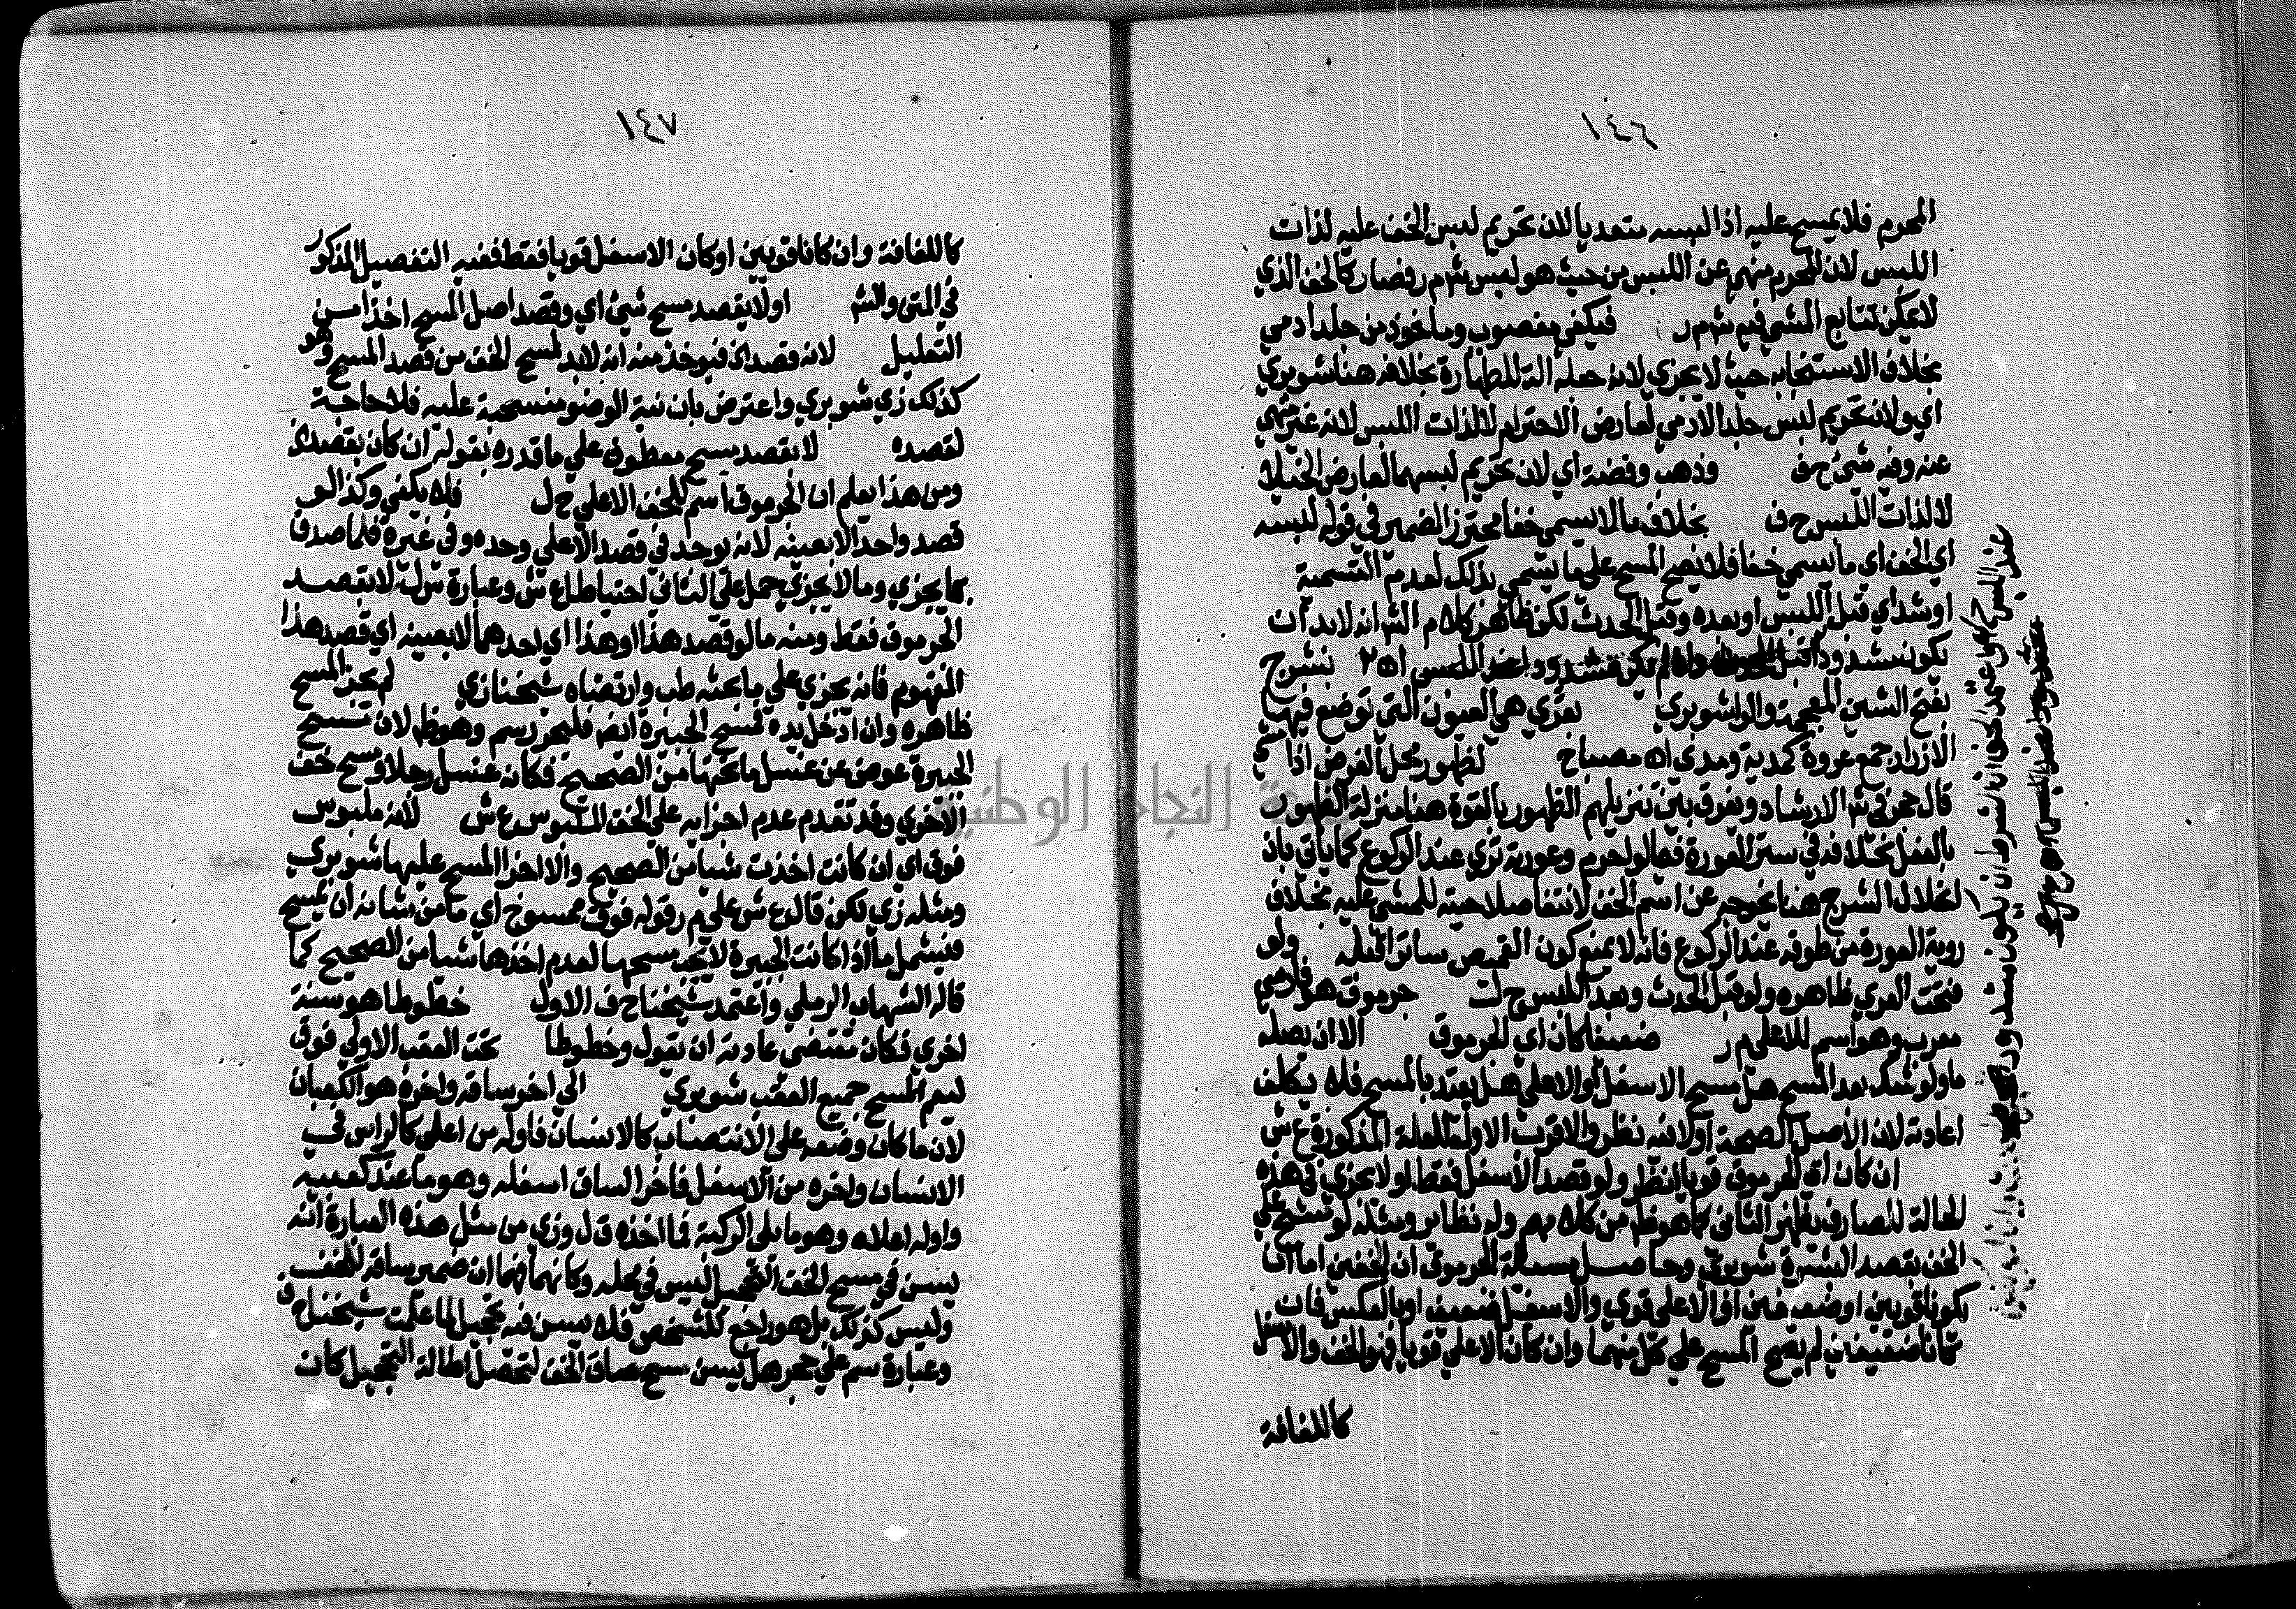 ١٤٦
المحرم فلا يمسح عليه اذا لبسه متعديا لان تحريم لبس الخف عليه لذات
اللبس لان المحرم منهي عن اللبس من حيث هو لبس ش م ر فصار كالخف الذي
لا يمكن تتابع المشي فيه ش م ر فيكفي مغصوب وماخوذ من جلد ادمي
بخلاف الاستنجا به حيث لا يجزي لانه جعله الة للطهارة بخلافه هنا شوبري
اي ولان تحريم لبس جلد الادمي لعارض الاحترام لا لذات اللبس لانه غير منهي
عنه وفيه شئ ح ف وذهب وفضة اي لان تحريم لبسهما لعارض الخيلا
لا لذات اللبس ح ف بخلاف ما لا يسمى خفا محترز الضمير في قوله لبسه
اي الخف اي ما يسمي خفا فلا يصح المسح على ما يسمي بذلك لعدم التسمية
او شد اي قبل اللبس او بعده وقبل الحدث لكن ظاهر كلام الش انه لا بد ان
يكون مشدودا قبل بشرج
بفتح الشين المعجمة والرا شوبري بعري هي العيون التي توضع فيها
الازرار جمع عروة كمدية ومدى اه مصباح لظهور محل الفرض اذا مشى
قال حجر في ش الارشاد ويفرق بين تنزيلهم الظهور بالقوة هنا منزلة الظهور
بالفعل بخلافه في ستر العورة فيما لو احرم وعورته تري عند الركوع كما ياتي بان
اختلال الشرج هنا يخرجه عن اسم الخف لانتفا صلاحيته للمشي عليه بخلاف
روية العورة من طوقه عند الركوع فانه لا يمنع كون القميص ساترا قبله ولو
فتحت العري ظاهره ولو قبل الحدث وبعد اللبس ح ل جرموق هو فارسي
معرب وهو اسم للاعلى م ر ضعيفا كان اي الجرموق الا ان يصله
ما ولو شك بعد المسح هل مسح الاسفل او الاعلي هل يعتد بالمسح فلا يكلف
اعادته لان الاصل الصحة او لا فيه نظر والاقرب الاول للعلة المذكورة ع ش
ان كان اي الجرموق قويا انظر ولو قصد الاسفل فقط او لا يجزي في هذه
الحالة للصارف يظهر الثاني كما هو ظ من كلامهم وله نظاير ومثله لو مسح علي
الخف بقصد البشرة شوبري وحاصل مسالة الجرموق ان الخفين اما ان
يكونا قويين او ضعيفين او الاعلي قوي والاسفل ضعيف او بالعكس فان
كانا ضعيفين لم يصح المسح علي كل منهما وان كان الاعلي قويا فهو الخف والاسفل
كاللفافة
١٤٧
كاللفافة وان كانا قويين او كان الاسفل قويا فقط ففيه التفصيل المذكور
في المتن والش او لا يقصد مسح شئ اي وقصد اصل المسح اخذا من
التعليل لانه قصد الخ فيوخذ منه انه لا بد لمسح الخف من قصد المسح وهو
كذلك زي شوبري واعترض بان نية الوضو منسحبة عليه فلا حاجة
لقصده لا بقصد مسح معطوف علي ما قدره بقوله ان كان بقصدي
ومن هذا يعلم ان الجرموق اسم للخف الاعلي ح ل فلا يكفي وكذا لو
قصد واحدا لا بعينه لانه يوجد في قصد الاعلي وحده وفي غيره فلما صدق
بما يجزي وما لا يجزي حمل علي الثاني احتياطا ع ش وعبارة س ل لا بقصد
الجرموق فقط ومنه ما لو قصد هذا او هذا اي احدهما لا بعينه اي قصد هذا
المفهوم فانه يجزي علي ما بحثه طب وارتضاه شيخنا زي لم يجز المسح
ظاهره وان ادخل يده فمسح الجبيرة ايضا فليحرر سم وهو ظ لان مسح
الجبيرة عوض عن غسل ما تحتها من الصحيح فكانه غسل رجلا ومسح خف
الاخري وقد تقدم عدم اجزايه علي الخف الملبوس ع ش لانه ملبوس
فوق اي ان كانت اخذت شيا من الصحيح والا اجزا المسح عليها شوبري
ومثله زي لكن قال ع ش علي م ر قوله فوق ممسوح اي ما من شانه ان يمسح
فيشمل ما اذا كانت الجبيرة لا يجب مسحها لعدم اخذها شيا من الصحيح كما
قاله الشهاب الرملي واعتمد شيخنا ح ف الاول خطوطا هو سنة
اخري فكان مقتضى عادته ان يقول وخطوطا تحت العقب الاولي فوق
ليعم المسح جميع العقب شوبري الي اخر ساقه واخره هو الكعبان
لان ما كان وضعه علي الانتصاب كالانسان فاوله من اعلي كالراس في
الانسان واخره من الاسفل فاخر الساق اسفله وهو ما عند كعبيه
واوله اعلاه وهو ما يلي الركبة فما اخذه ق ل وزي من مثل هذه العبارة انه
يسن في مسح الخف التحجيل ليس في محله وكانهما فهما ان ضمير ساقه للخف
وليس كذلك بل هو راجع للشخص فلا يسن فيه تحجيل لما علمت شيخنا ح ف
وعبارة سم علي حجر هل يسن مسح ساق الخف لتحصل اطالة التحجيل كان